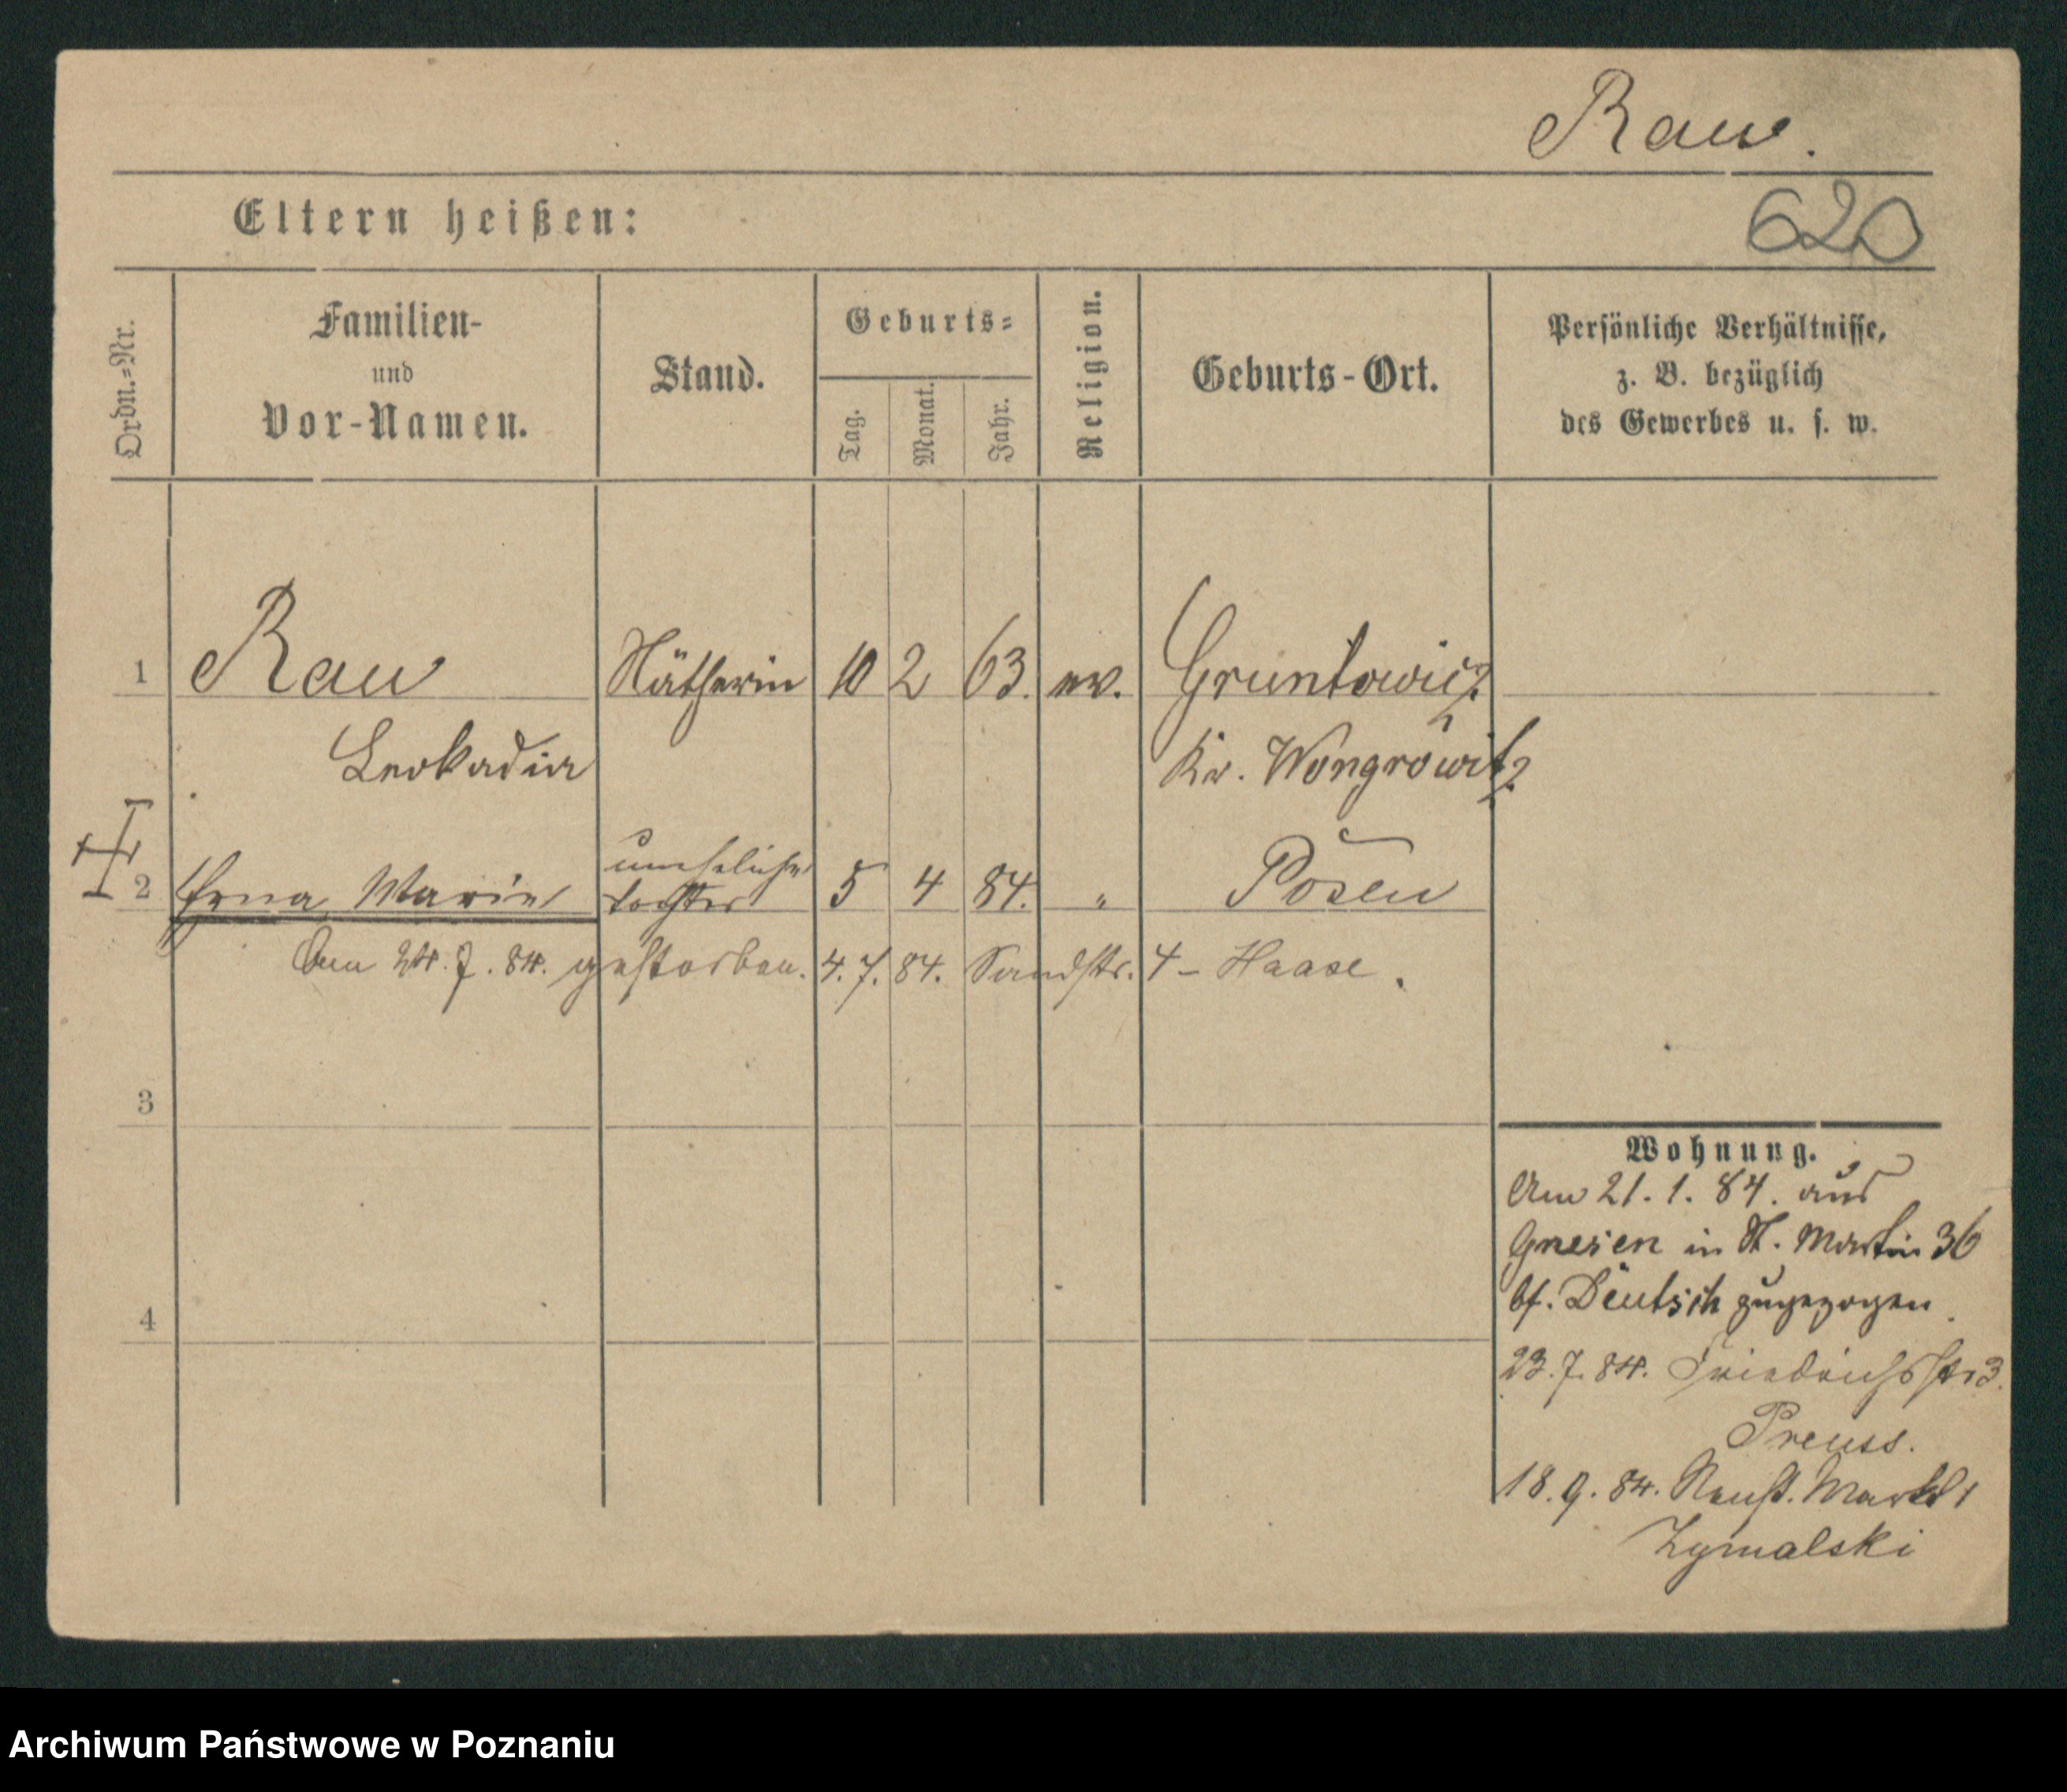 Rau.
620
Eltern heißen:
Ordn.=Nr.
Familien-
und
Vor-Namen.
Stand.
Geburts=
Tag.
Monat.
Jahr.
Religion.
Geburts-Ort.
Persönliche Verhältnisse,
z. B. bezüglich
des Gewerbes u. s. w.
1 Rau Nätherin 10 2 63. ev. Gruntowicz
Leokadia Kr. Wongrowitz
2 Erna Marie uneheliche Tochter 5 4 84. " Posen
Am 24.7.84. gestorben. 4.7.84. Sandstr. 4 - Haase.
3
4
Wohnung.
Am 21.1.84. aus
Gnesen in St. Martin 36
bf. Deutsch zugezogen
23.7.84. Friedrichsstr 3.
Preuss.
18.9.84. Neust. Markt 1
Zymalski
Archiwum Państwowe w Poznaniu